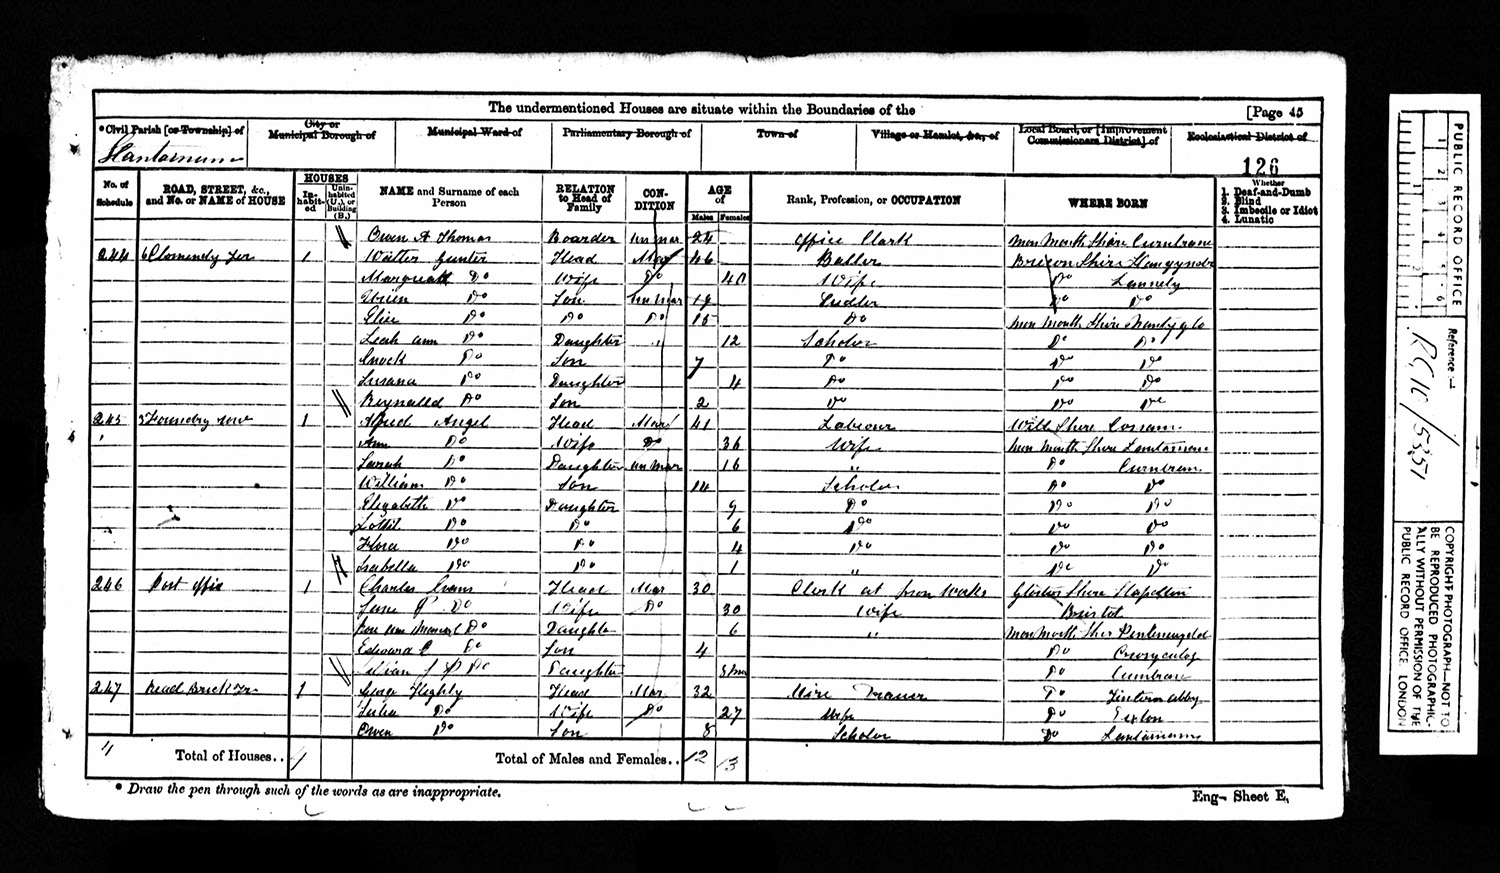 The undermentioned Houses are situate within the Boundaries of the [Page 45
*Civil Parish [or Township] of City or Municipal Borough of Municipal Ward of Parliamentary Borough of Town of Village or Hamlet, &c., of Local Board, or [Improvement Commissioners District] of Ecclesiastical District of
Llantarnum 126
No. of Schedule ROAD, STREET, &c., and No. or NAME of HOUSE HOUSES Inhabited Uninhabited (U.), or Building (B.) NAME and Surname of each Person RELATION to Head of Family CONDITION AGE of Males Females Rank, Profession, or OCCUPATION WHERE BORN Whether 1. Deaf-and-Dumb 2. Blind 3. Imbecile or Idiot 4. Lunatic
Owen A Thomas Boarder unmar 24 Office Clark Monmouth Shire Cumbrane
244 6 1 Walter Gunter Head Mar 46 Baller Brecon Shire
Do Wife Do 40 Wife Do Lannely
Do Son unmar 19 Do Do
Do Do Do 15 Do Monmouth Shire Nantyglo
Leah Ann Do Daughter 12 Scholar Do Do
Enock Do Son 7 Do Do Do
Susana Do Daughter 4 Do Do Do
Reynalld Do Son 2 Do Do Do
245 3 Foundry row 1 Alfred Angel Head Mar 41 Labeour Wilt Shire Corsam
Ann Do Wife Do 36 Wife Monmouth Shire
Sarah Do Daughter unmar 16 " Do Cumbran
William Do Son 14 Scholar Do Do
Elizabeth Do Daughter 9 Do Do Do
Do Do 6 Do Do Do
Flora Do Do 4 Do Do Do
Isabella Do Do 1 " Do Do
246 Post Office 1 Charles Evans Head Mar 30 Clerk at Iron Works Gloster Shire Stapelton
Jane P Do Wife Do 30 Wife Bristol
Do Daughter 6 " Monmouth Shire
Edward C Do Son 4 Do
Lillian J P Do Daughter 3 mo Do Cumbran
247 1 George Highly Head Mar 32 Wire Drawer Do Tintern abby
Do Wife Do 27 Wife Do
Owen Do Son 8 Scholar Do Lantarnum
4 Total of Houses.. 4 Total of Males and Females.. 12 13
* Draw the pen through such of the words as are inappropriate. Eng- Sheet E.
PUBLIC RECORD OFFICE
1 2 3 4 5 6
Reference:-
RG 10/5351
COPYRIGHT PHOTOGRAPH-NOT TO BE REPRODUCED PHOTOGRAPHICALLY WITHOUT PERMISSION OF THE PUBLIC RECORD OFFICE, LONDON